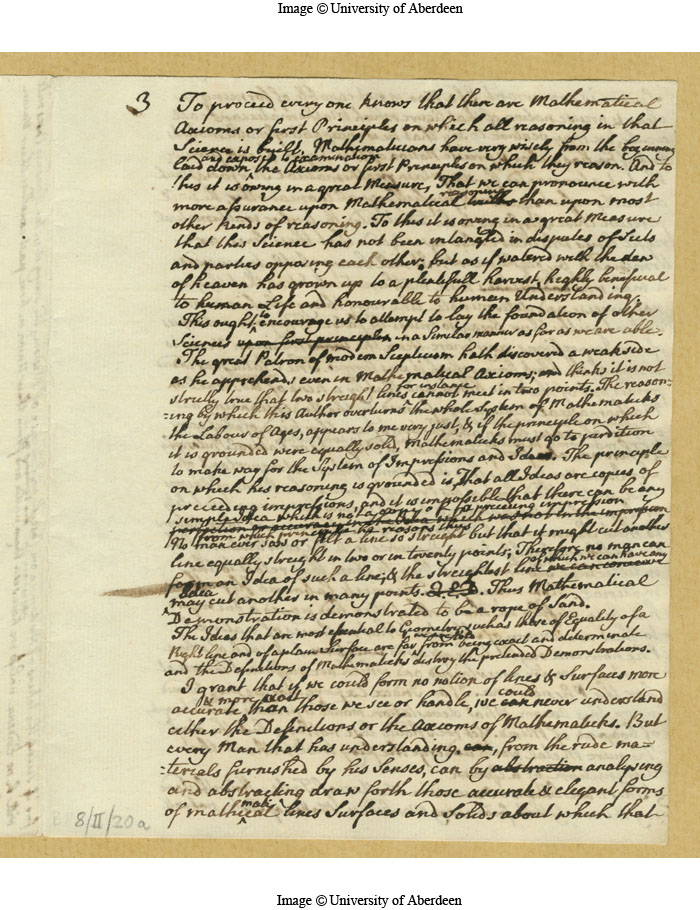 Image © University of Aberdeen
3 To proceed every one knows that there are Mathematical
Axioms or first Principles on which all reasoning in that
Science is built, Mathematicians have very wisely from the beginning
and exposed to examination
laid down the Axioms or first Principles on which they reason. And to
this it is owing in a great Measure, That we can pronounce with
reasoning
more assurance upon Mathematical truths than upon most
other kinds of reasoning. To this it is owing in a great Measure
that this Science has not been intangled in disputes of Sects
and parties opposing each other; but as if watered with the dew
of heaven has grown up to a plentifull harvest, highly beneficial
to human Life and honourable to human Understanding.
This ought to encourage us to attempt to lay the foundation of other
Sciences upon first principles in a Similar manner as far as we are able.
The great Patron of modern Scepticism hath discovered a weak side
as he apprehends even in Mathematical Axioms, and thinks it is not
for instance
strictly true that two streight lines cannot meet in two points. The reason-
:ing by which this Author overturns the whole System of Mathematicks
the Labour of Ages, appears to me very just, & if the principle on which
it is grounded were equally solid, Mathematicks must go to perdition
to make way for the System of Impressions and Ideas. The principle
on which his reasoning is grounded is, That all Ideas are copies of
preceeding impressions, and it is impossible that there can be any
simple Idea which is not a copy of a preceeding impression
from which principle he reasons thus
No man ever saw or felt a line so streight but that it might cut another
line equally streight in two or in twenty points; Therefore no man can
which we can have any
form an Idea of such a line; & the streightest line we can conceive
Idea
may cut another in many points. Q.E.D. Thus Mathematical
Demonstration is demonstrated to be a rope of Sand.
The Ideas that are most essential to Geometry such as those of Equality of a
Right line and of a plain Surface are far from being exact and determinate
and the Definitions of Mathematicks destroy the pretended Demonstrations.
I grant that if we could form no notion of lines & Surfaces more
& more exact could
accurate, than those we see or handle, we can never understand
either the Definitions or the Axioms of Mathematicks. But
every Man that has understanding can, from the rude ma-
:terials furnished by his Senses, can by abstraction analysing
and abstracting draw forth those accurate & elegant forms
mati
of mathical lines Surfaces and Solids about which that
8/II/20a
Image © University of Aberdeen